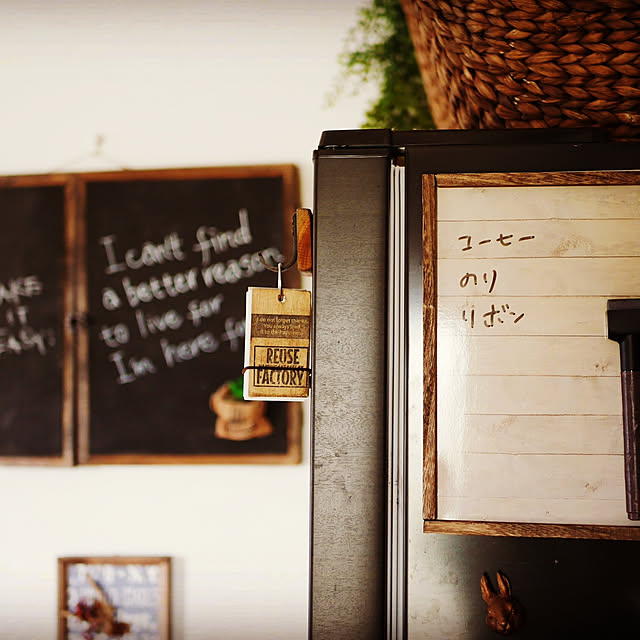 I can't find
a better reason
to live for
I'm here f
REUSE
FACTORY
コーヒー
のり
リボン